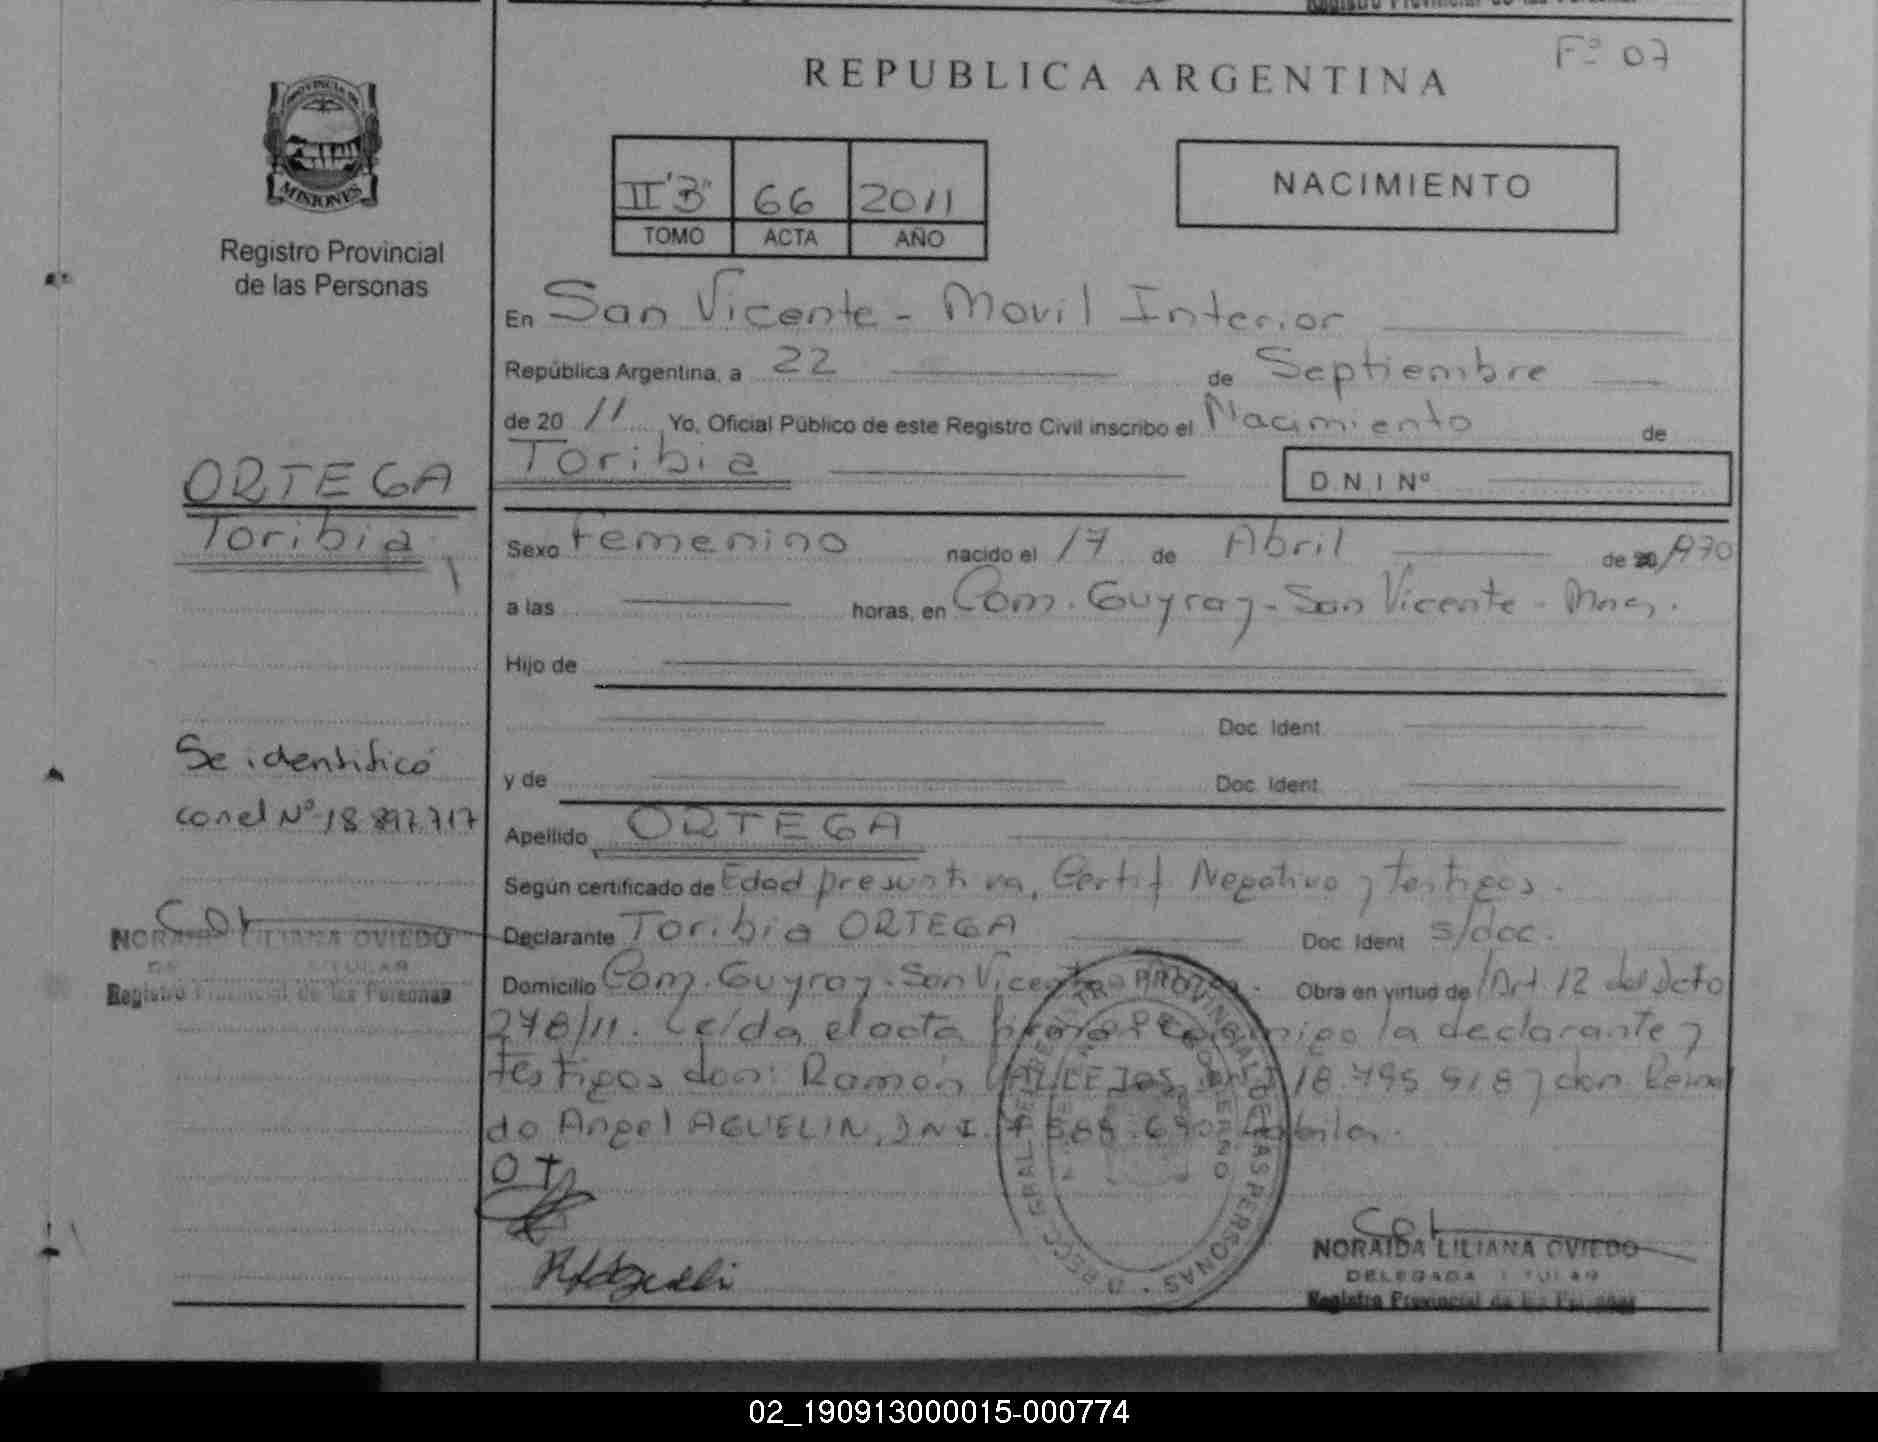 Fº 07
REPUBLICA ARGENTINA
PROVINCIA DE
MISIONES
Registro Provincial
de las Personas
II "B" 66 2011
TOMO ACTA AÑO
NACIMIENTO
En San Vicente - Movil Interior
República Argentina, a 22 de Septiembre
de 20 11 Yo, Oficial Público de este Registro Civil inscribo el Nacimiento de
Toribia
D.N.I Nº
ORTEGA
Toribia
Sexo Femenino nacido el 17 de Abril de 1970
a las horas, en Com. Guyray - San Vicente - Mnes.
Hijo de
Doc. Ident.
y de Doc. Ident.
Se identificó
con el Nº 18.897.717
Apellido ORTEGA
Según certificado de Edad presuntiva, Certif Negativo y testigos.
Declarante Toribia ORTEGA Doc. Ident s/doc.
Domicilio Com. Guyray - San Vicente Obra en virtud de Art 12 del Dcto
278/11. Leída el acta la declarante y
testigos don: Ramón VALLEJOS, 18.795.918 y don Reinal
do Angel AGUELIN, DNI.
OT
NORAIDA LILIANA OVIEDO
Registro Provincial de las Personas
NORAIDA LILIANA OVIEDO
DELEGADA TITULAR
Registro Provincial de las Personas
02_190913000015-000774